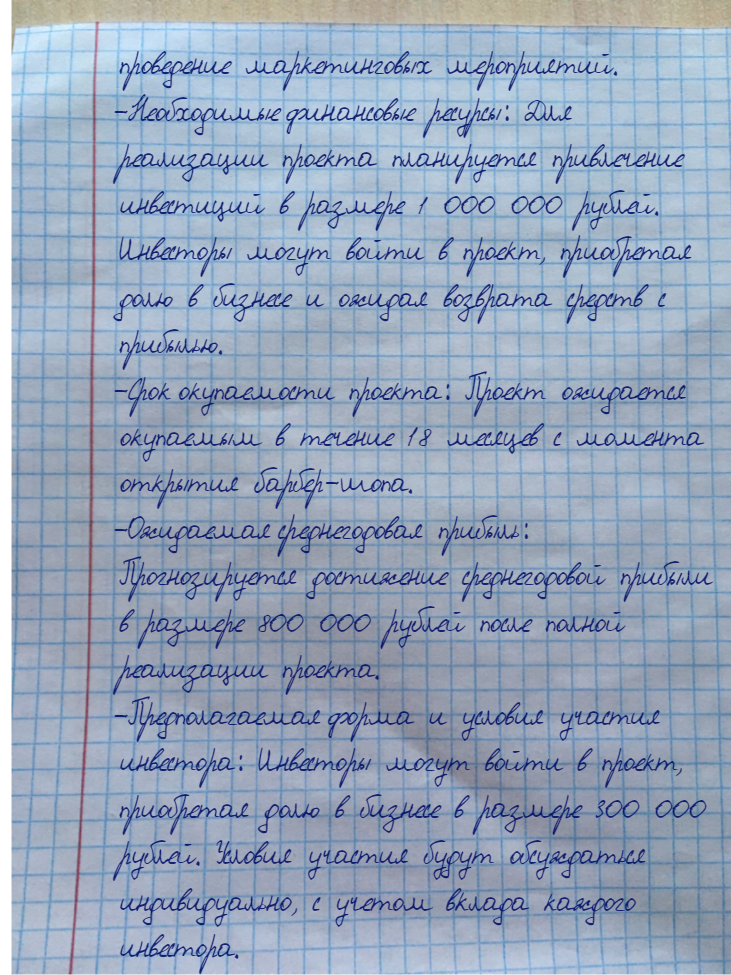 проведение маркетинговых мероприятий.
-Необходимые финансовые ресурсы: Для
реализации проекта планируется привлечение
инвестиций в размере 1 000 000 рублей.
Инвесторы могут войти в проект, приобретая
долю в бизнесе и ожидая возврата средств с
прибылью.
-Срок окупаемости проекта: Проект ожидается
окупаемым в течение 18 месяцев с момента
открытия барбер-шопа.
-Ожидаемая среднегодовая прибыль:
Прогнозируется достижение среднегодовой прибыли
в размере 800 000 рублей после полной
реализации проекта.
-Предполагаемая форма и условия участия
инвестора: Инвесторы могут войти в проект,
приобретая долю в бизнесе в размере 300 000
рублей. Условия участия будут обсуждаться
индивидуально, с учетом вклада каждого
инвестора.